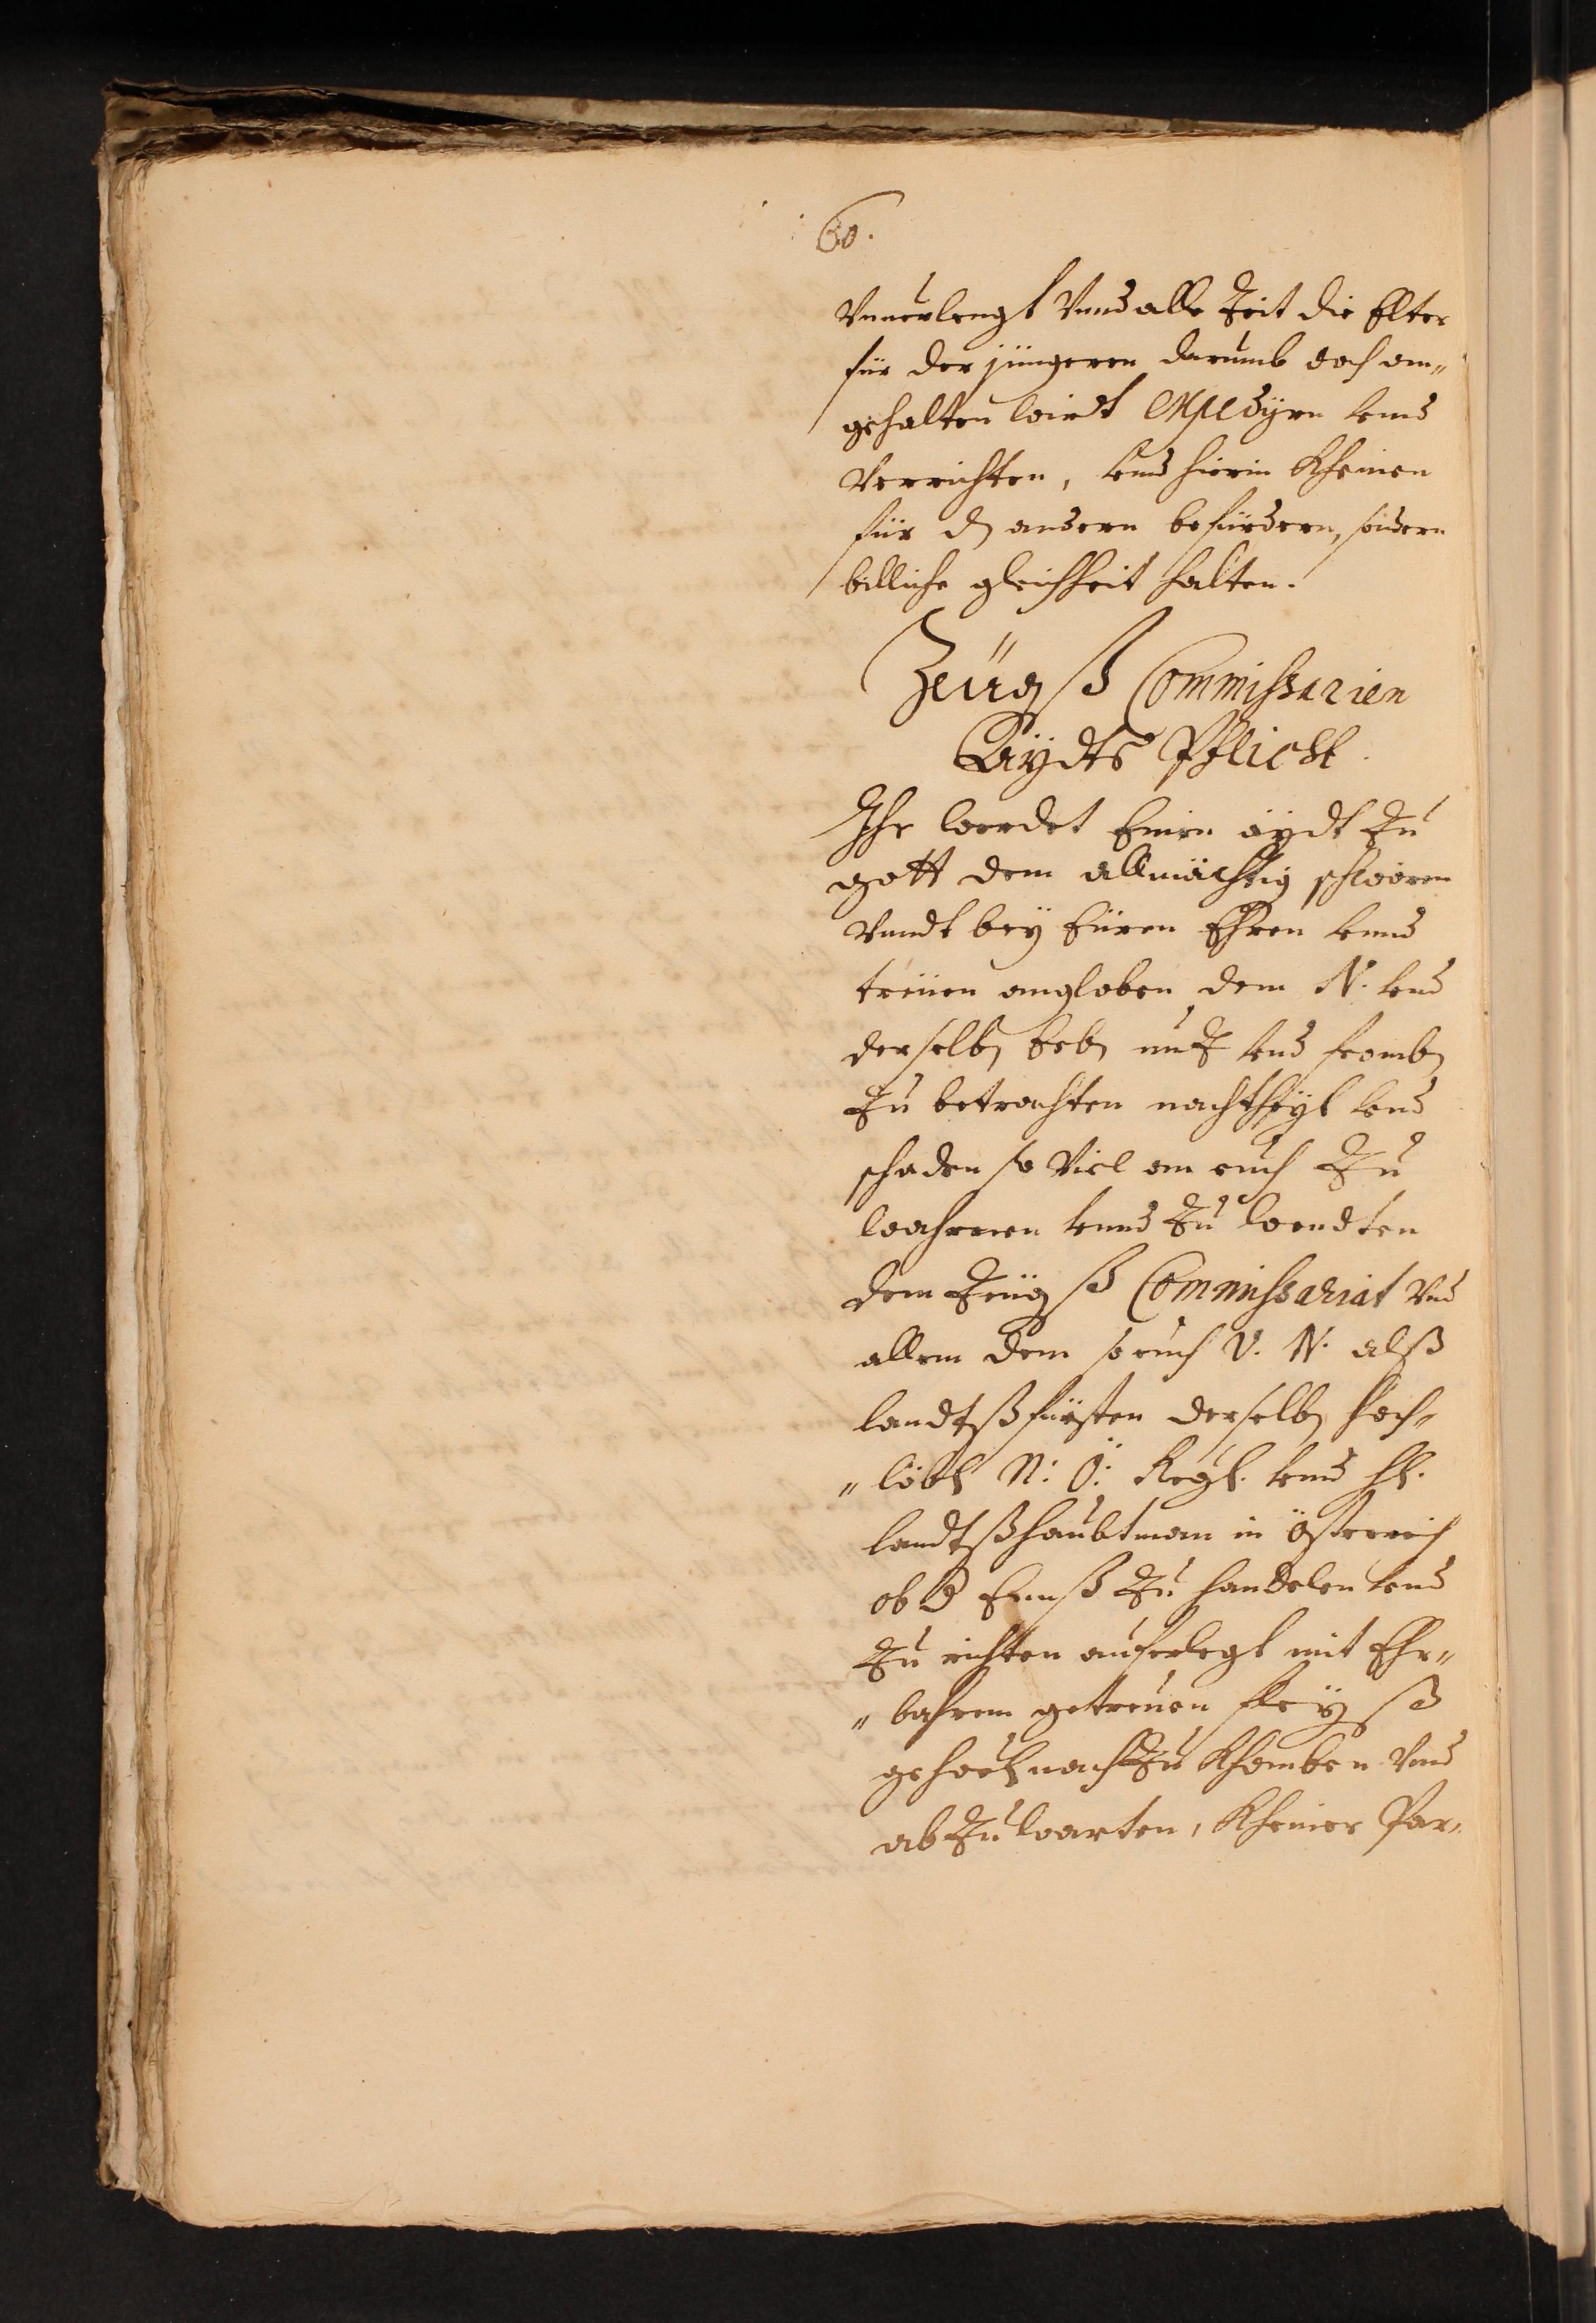 60.
Vnuerlengt Vnnd alle Zeit die Elter
für der jüngeren darumb doch an„
gehalten wirdt expedÿrn vnnd
Verrichten, vnnd hierin Kheinen
für dn andern befürdern, sondern
billiche gleichheit halten.
Zeügß Commissarien
Aÿdts Pflicht.
Ihr werdet Einen aÿdt Zu
gott dem allmächtig schwören
Vnndt beÿ Eüren Ehren vnnd
treüen angloben dem N. vnd
derselbn Erbn nuz vnd frombn
Zu betrachten nachtheÿl vnd
schaden so Viel an euch Zu
wahrnen vnnd Zu wendten
dem Zeügß Commissariat Vnd
allem dem so euch V. N. alß
landtsfürsten derselbn hoch„
„löbl N: Ö: Regl. vnnd hl.
landtshaubtman in Österreich
ob d Ennß Zu handelen vnd
Zu richten auferlegt mit Ehr„
„bahrem getreuen fleÿß
gehorl nach Zu Khomben Vnd
ab Zu warten, Kheiner Par„